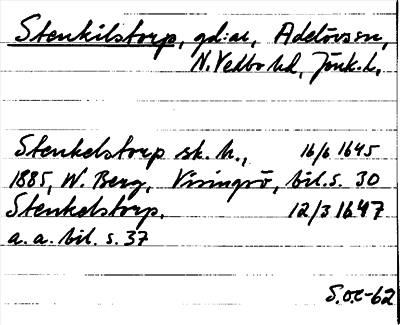 Stenkilstorp, gd:ar, Adelövs sn,
N. Vedbo hd, Jönk. L.
Stenkelstorp sk. h., 16/6 1645
1885, W. Berg, Visingsö, bil. s. 30
Stenkelstorp. 12/3 1647
a. a. bil. s. 37
S.O.E-62